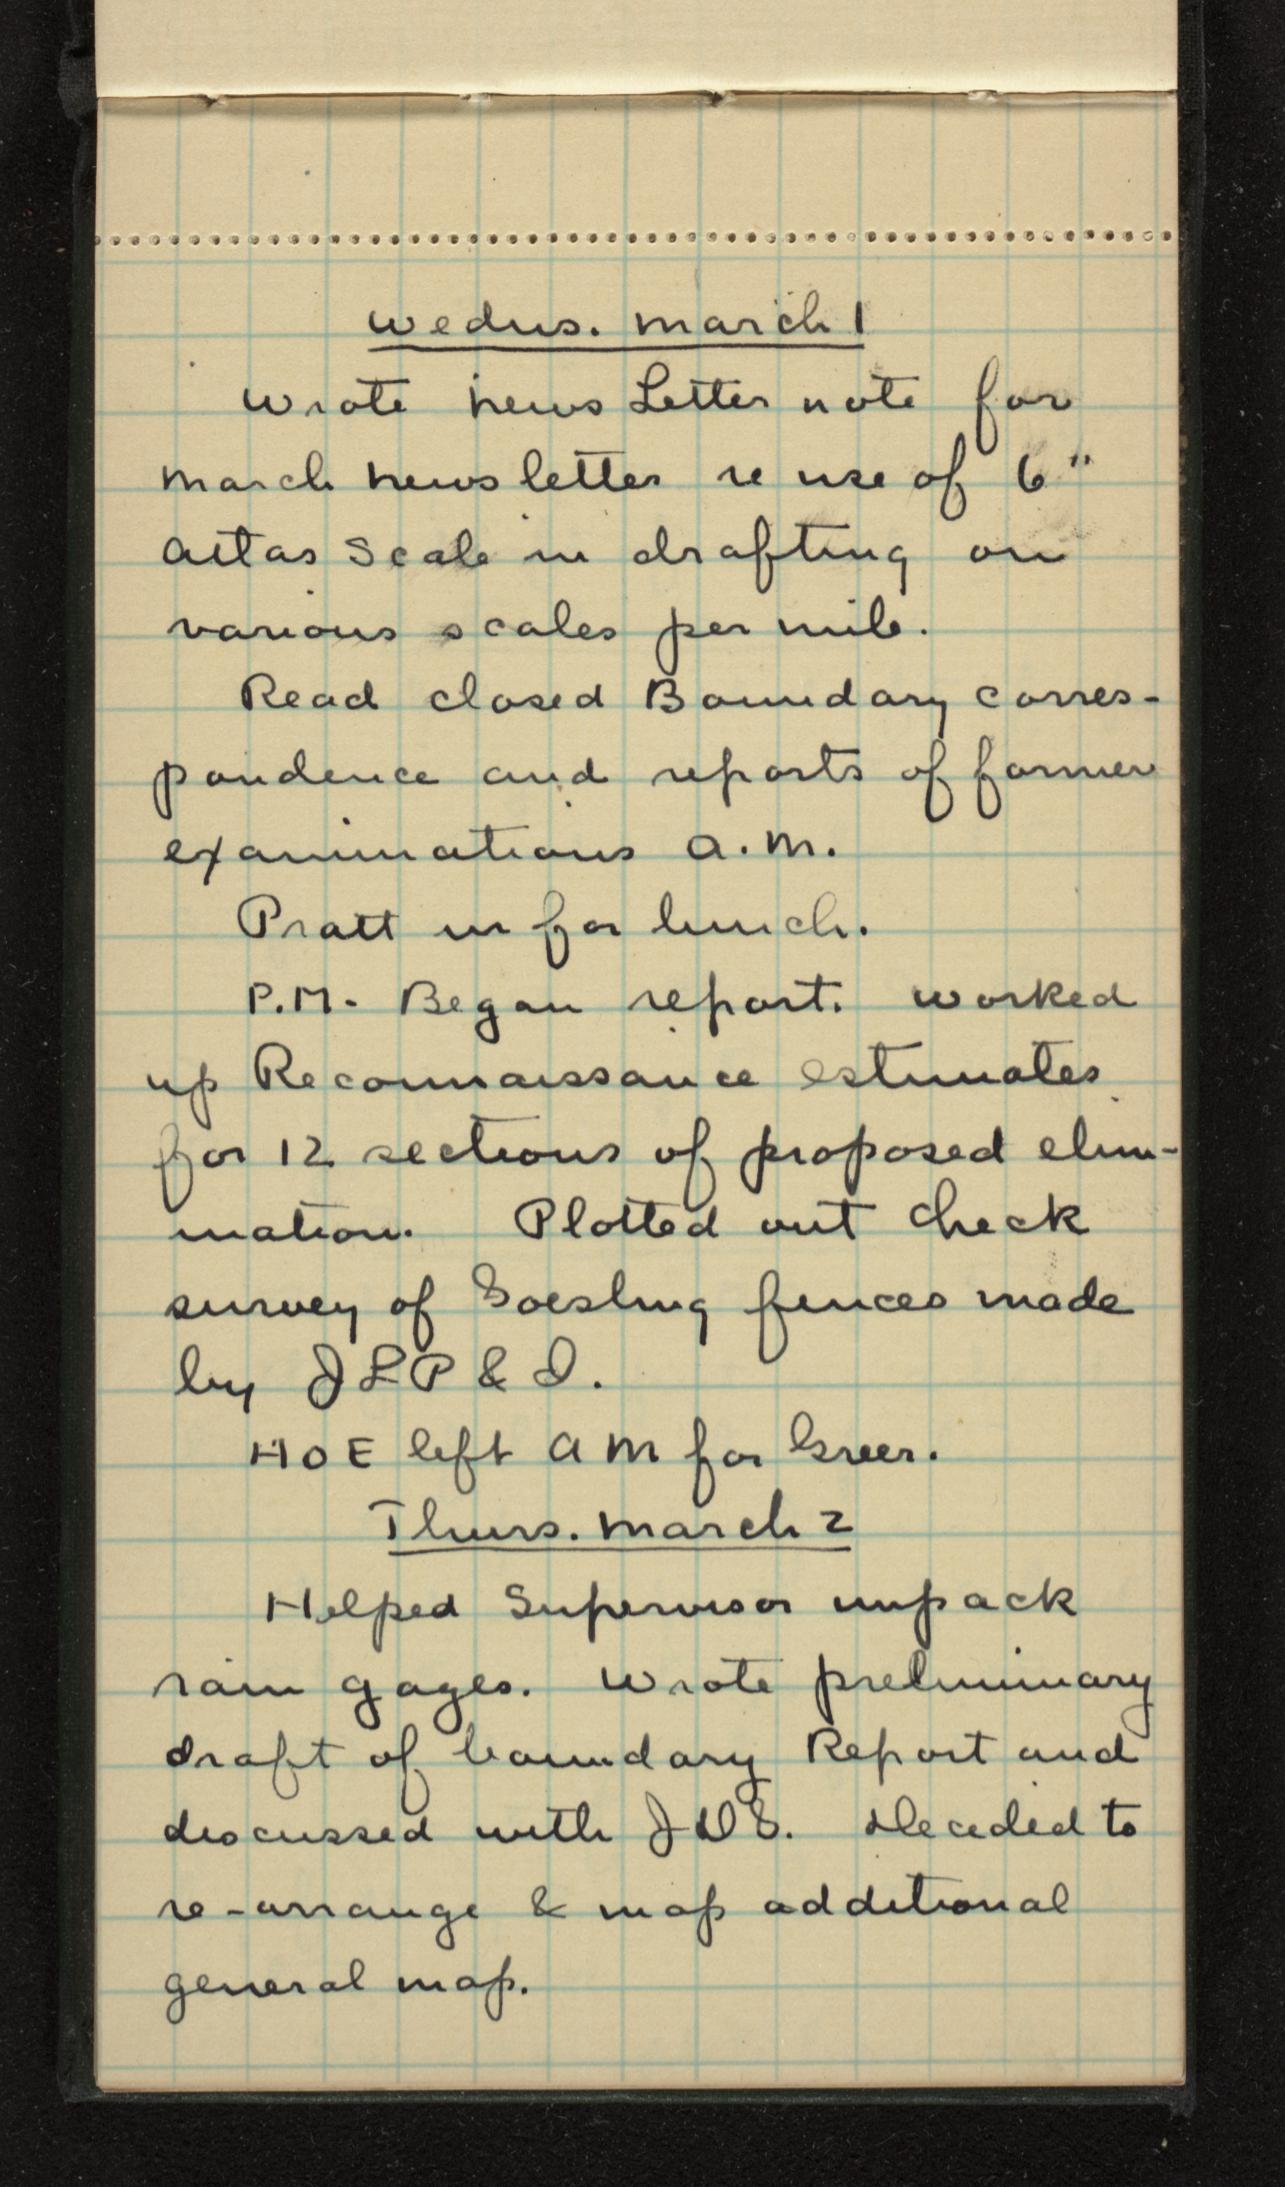 Wedns. March 1
Wrote News Letter note for
March News letter re use of 6"
Atlas Scale in drafting on
various scales per mile.
Read closed Boundary corres-
pondence and reports of former
examinations A.M.
Pratt in for lunch.
P.M. Began report. Worked
up Reconnaissance estimates
for 12 sections of proposed elim-
ination. Plotted out Check
survey of Goesling fences made
by JLP & I.
HOE left AM for Greer.
Thurs. March 2
Helped Supervisor unpack
rain gages. Wrote preliminary
draft of boundary Report and
discussed with JDG. Decided to
re-arrange & map additional
general map.